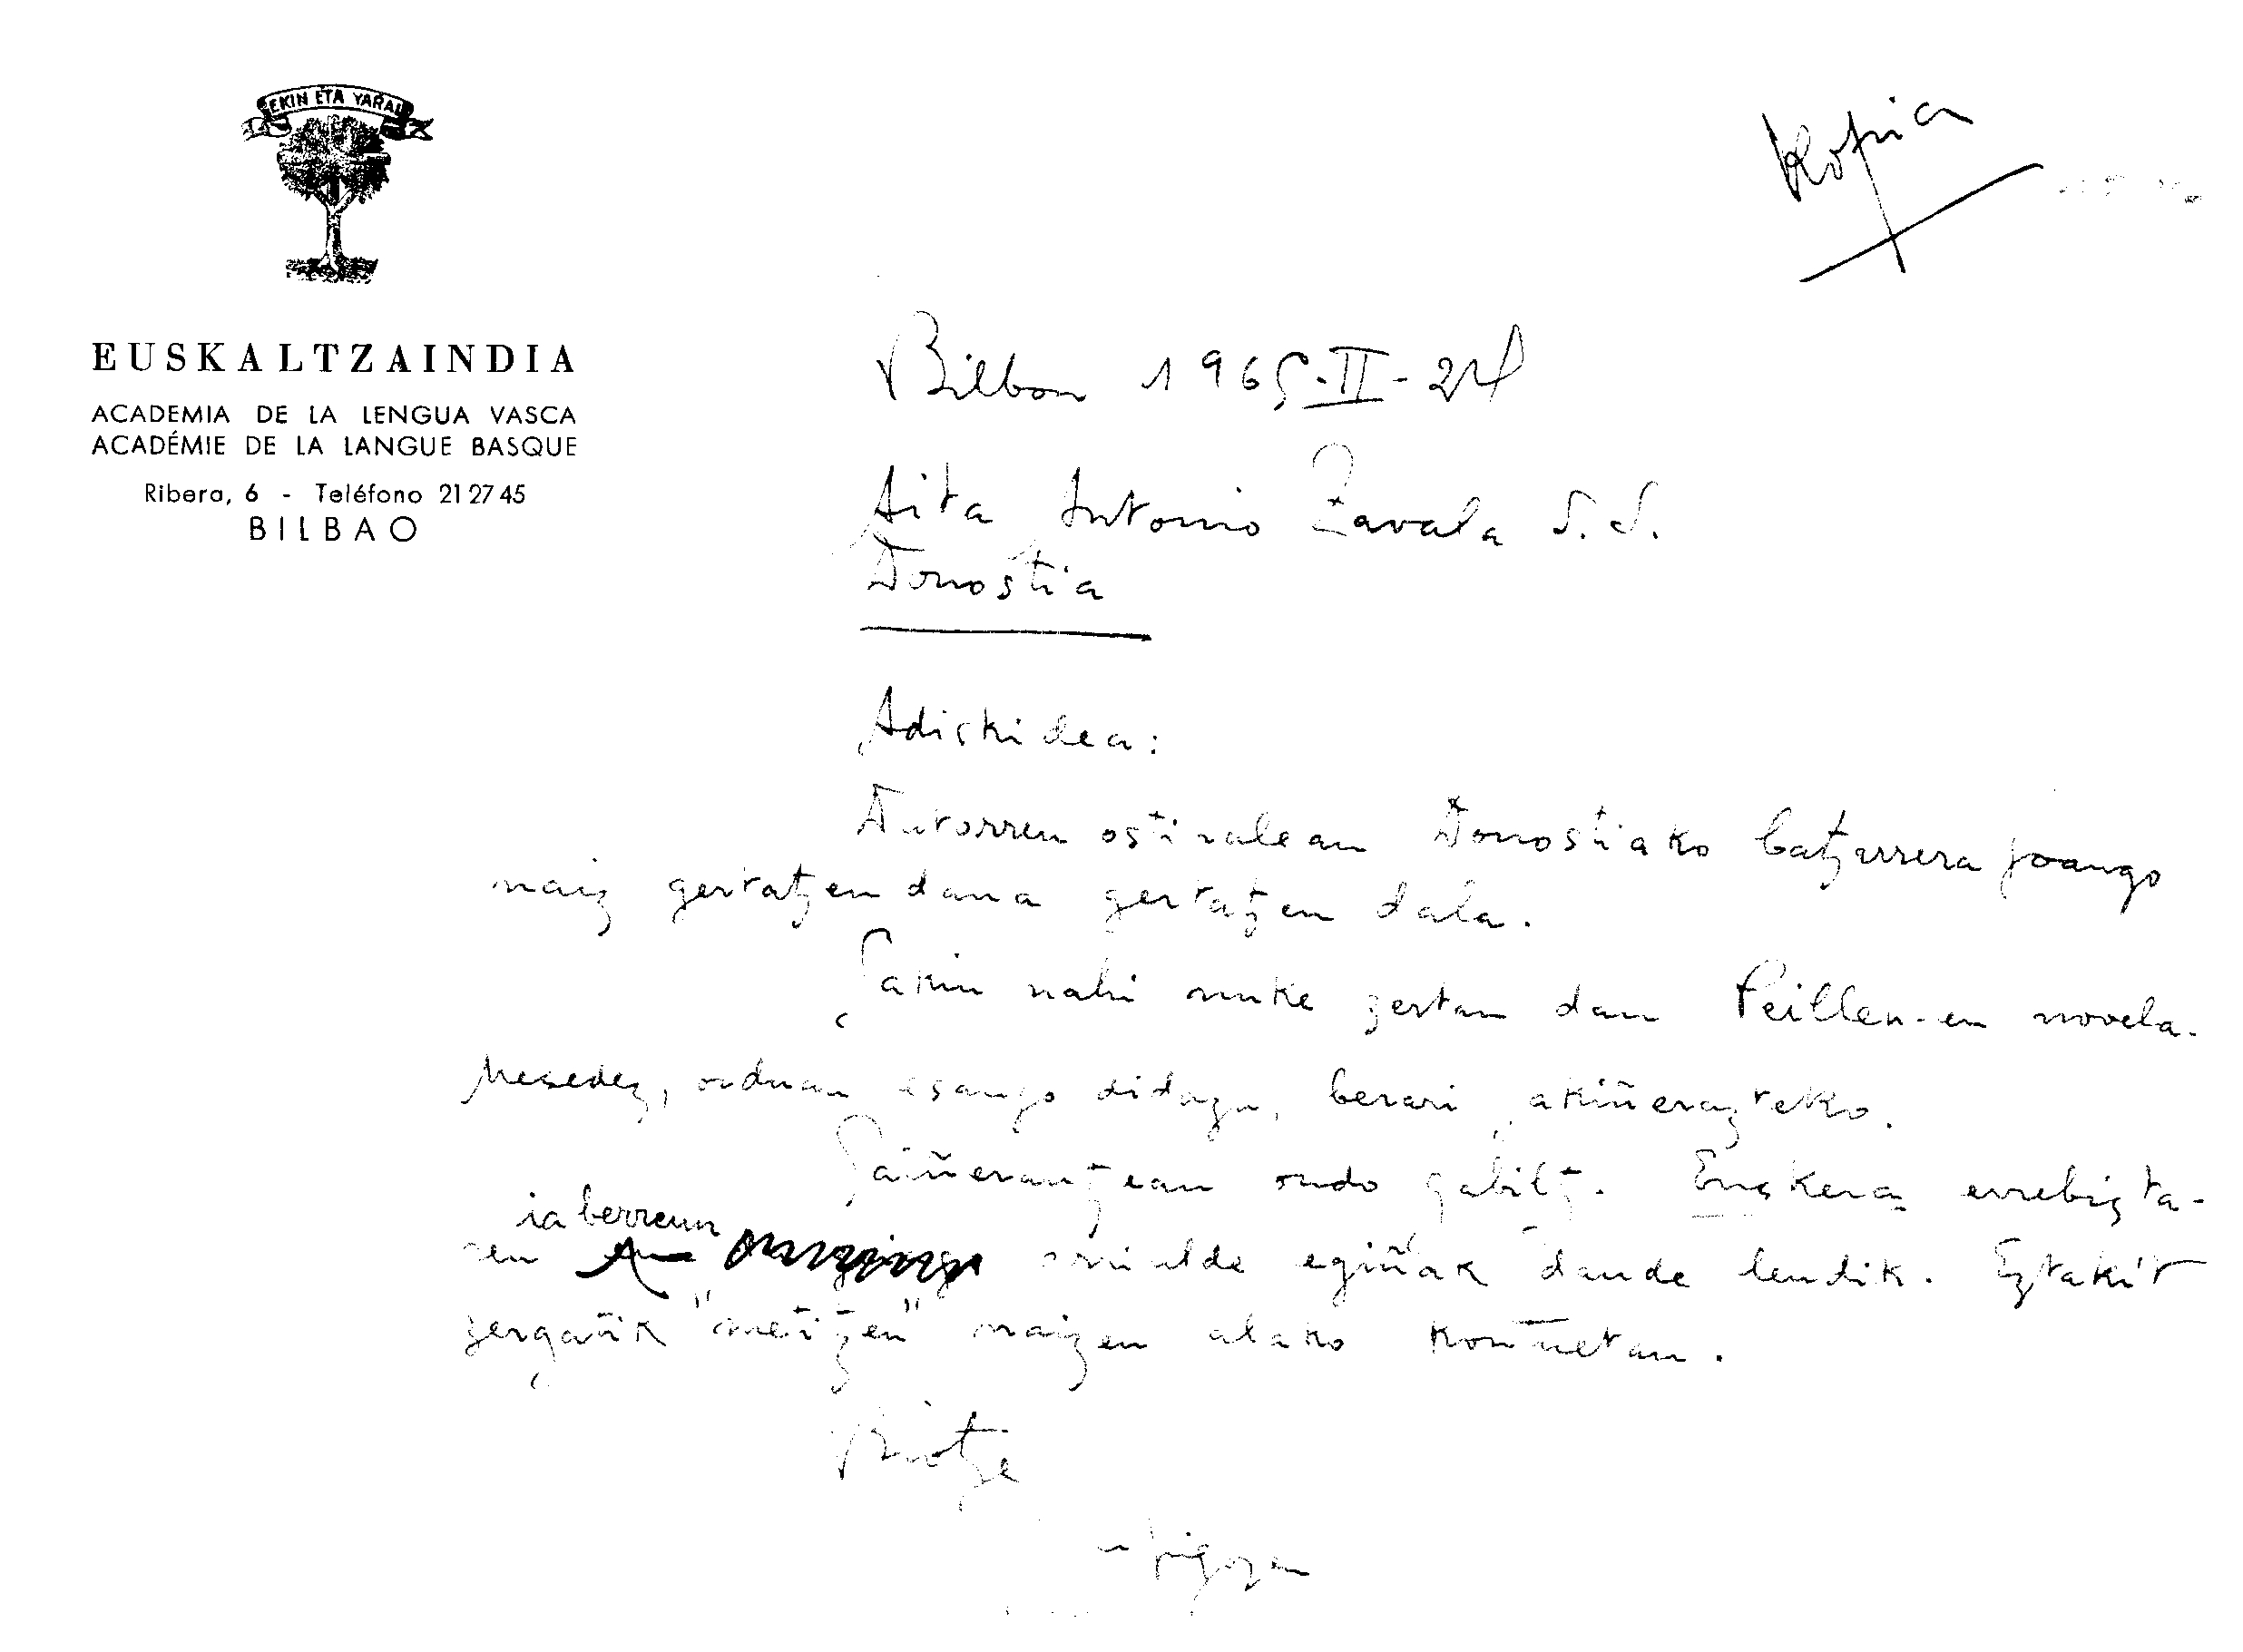 EKIN ETA YARAI
Kopia
EUSKALTZAINDIA
ACADEMIA DE LA LENGUA VASCA
ACADÉMIE DE LA LANGUE BASQUE
Ribera, 6 - Teléfono 21 27 45
BILBAO
Bilbon 1965-II-24
Aita Antonio Zavala S.J.
Donostia
Adiskidea:
Datorren ostiralean Donostiako batzarrera joango
naiz gertatzen dana gertatzen dala.
Jakin nahi nuke zertan dan Peillen-en novela.
Mesedez, orduan esango didazu, berari jakiñerazteko.
Gaiñerantzean ondo gabiltz. Euskera errebizta-
ren ia berreun orrialde egiñak daude lendik. Eztakit
zergatik "meitzen" naizen alako kontuetan.
Biotzez